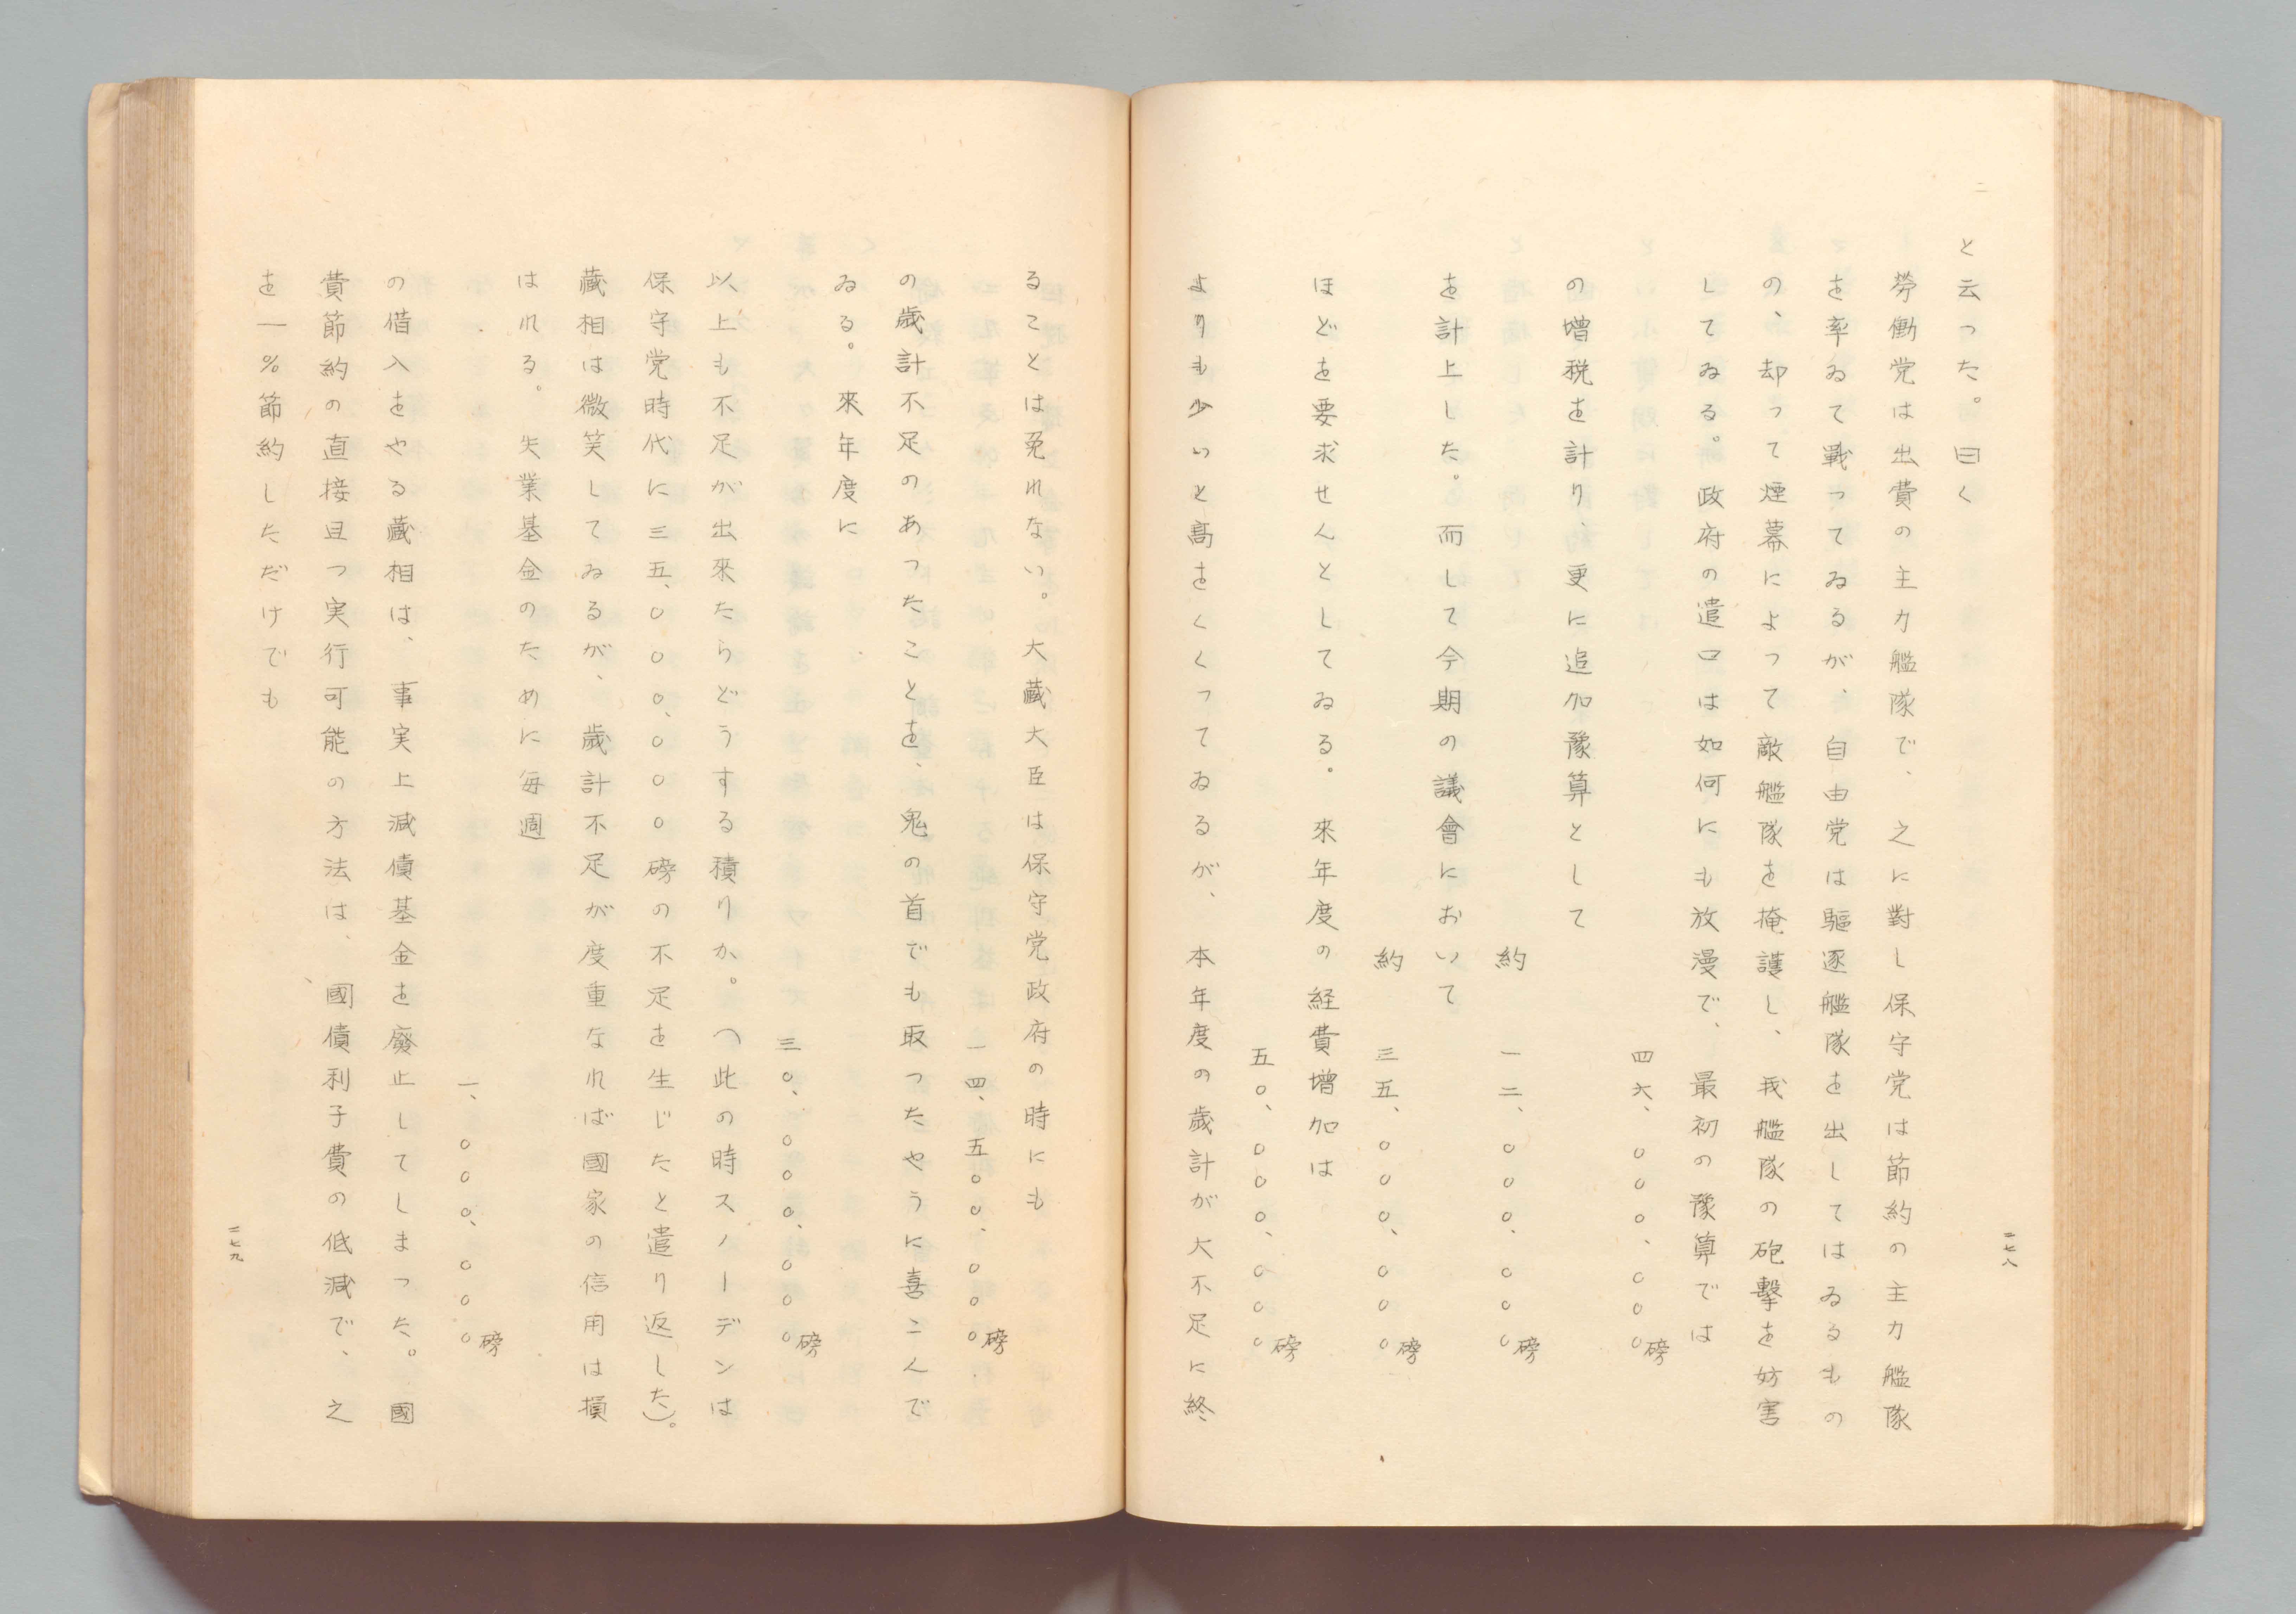 二七八
と云った。曰く
勞働党は出費の主力艦隊で、之に對し保守党は節約の主力艦隊
を率ゐて戰ってゐるが、自由党は驅逐艦隊を出してはゐるもの
の、却って煙幕によって敵艦隊を掩護し、我艦隊の砲擊を妨害
してゐる。政府の遣口は如何にも放漫で、最初の豫算では
四六、〇〇〇、〇〇〇磅
の増税を計り、更に追加豫算として
約 一二、〇〇〇、〇〇〇磅
を計上した。而して今期の議會において
約 三五、〇〇〇、〇〇〇磅
ほどを要求せんとしてゐる。來年度の経費増加は
五〇、〇〇〇、〇〇〇磅
よりも少いと高をくくってゐるが、本年度の歳計が大不足に終
ることは免れない。大藏大臣は保守党政府の時にも
一四、五〇〇、〇〇〇磅
の歳計不足のあったことを、鬼の首でも取ったやうに喜こんで
ゐる。來年度に
三〇、〇〇〇、〇〇〇磅
以上も不足が出來たらどうする積りか。(此の時スノーデンは
保守党時代に三五、〇〇〇、〇〇〇磅の不足を生じたと遣り返した)。
藏相は微笑してゐるが、歳計不足が度重なれば國家の信用は損
はれる。失業基金のために毎週
一、〇〇〇、〇〇〇磅
の借入をやる藏相は、事実上減債基金を廢止してしまった。國
費節約の直接且つ実行可能の方法は、國債利子費の低減で、之
を一%節約しただけでも
二七九